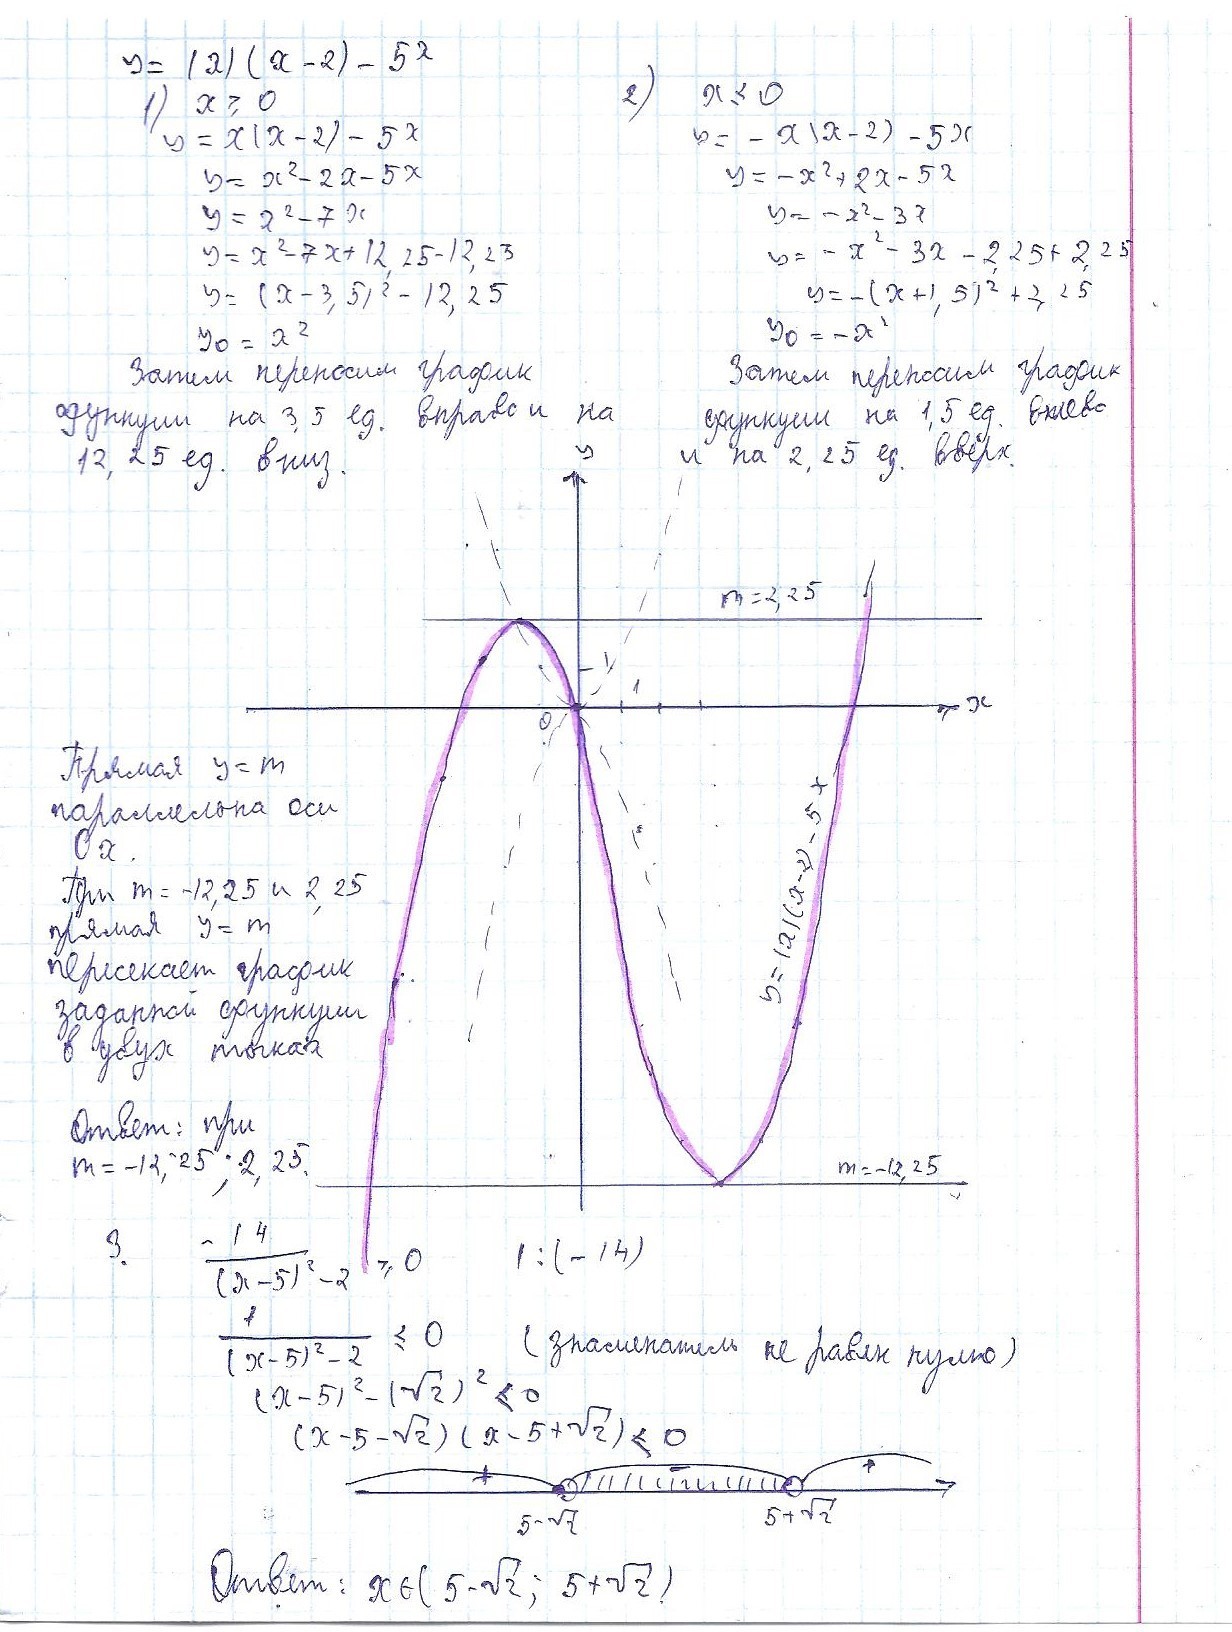 y = |x|(x-2) - 5x
1) x ≥ 0
y = x(x-2) - 5x
y = x² - 2x - 5x
y = x² - 7x
y = x² - 7x + 12,25 - 12,25
y = (x-3,5)² - 12,25
y₀ = x²
Затем переносим график
функции на 3,5 ед. вправо и на
12,25 ед. вниз.
2) x ≤ 0
y = -x(x-2) - 5x
y = -x² + 2x - 5x
y = -x² - 3x
y = -x² - 3x - 2,25 + 2,25
y = -(x+1,5)² + 2,25
y₀ = -x²
Затем переносим график
функции на 1,5 ед. влево
и на 2,25 ед. вверх.
y
m = 2,25
1
0
1
x
y = |x|(x-2) - 5x
m = -12,25
Прямая y = m
параллельна оси
Ox.
При m = -12,25 и 2,25
прямая y = m
пересекает график
заданной функции
в двух точках
Ответ: при
m = -12,25; 2,25.
3. -14/((x-5)² - 2) ≥ 0 | :(-14)
1/((x-5)² - 2) ≤ 0 (знаменатель не равен нулю)
(x-5)² - (√2)² < 0
(x-5-√2)(x-5+√2) < 0
+ - +
5-√2 5+√2
Ответ: x ∈ (5-√2; 5+√2)